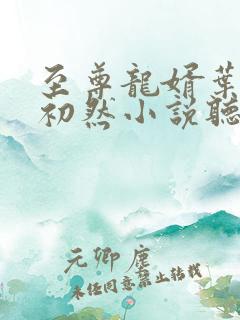 至尊龍婿葉
初然小説聽
元卿塵
未经同意禁止转载